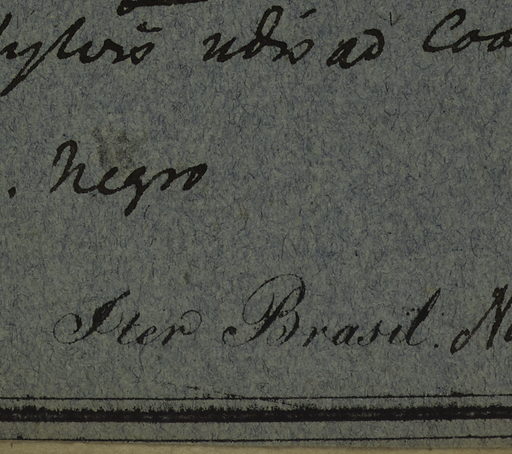 sylvis udis ad Coa
. Negro
Iter Brasil. N